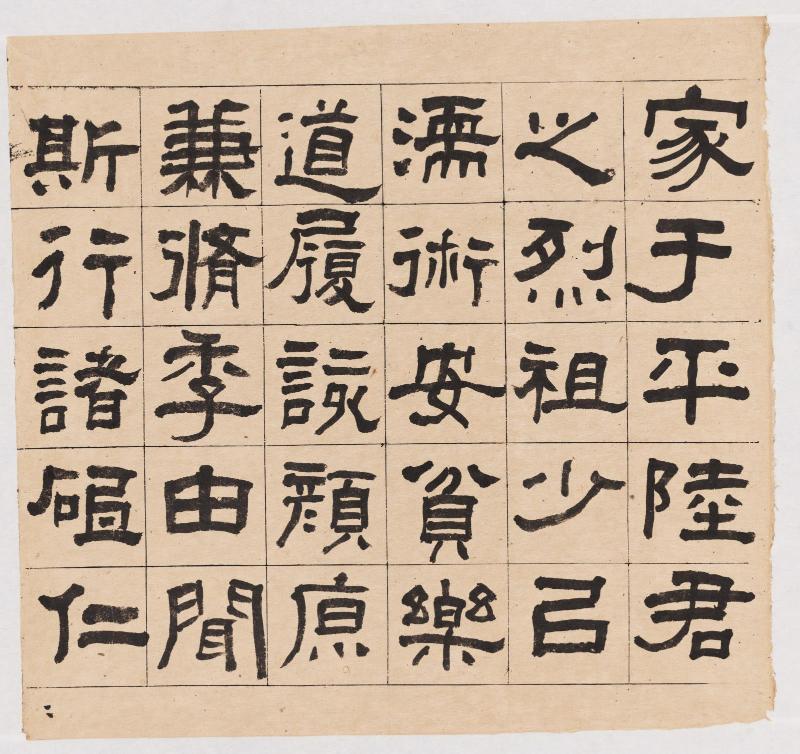 家于平陸君
之烈祖少㠯
濡術安貧樂
道履該顏原
兼脩季由聞
斯行諸砠仁